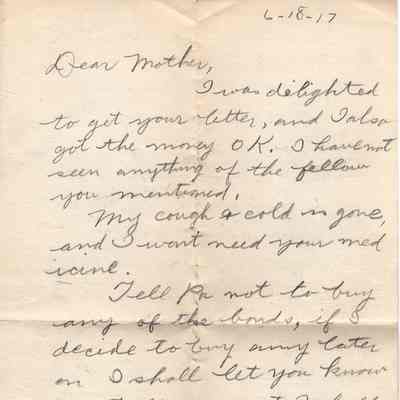 6-18-17
Dear Mother,
I was delighted
to get your letter, and I also
got the money OK. I have not
seen anything of the fellow
you mentioned.
My cough & cold is gone,
and I wont need your med
icine.
Tell Pa not to buy
any of the bonds, if I
decide to buy any later
on I shall let you know